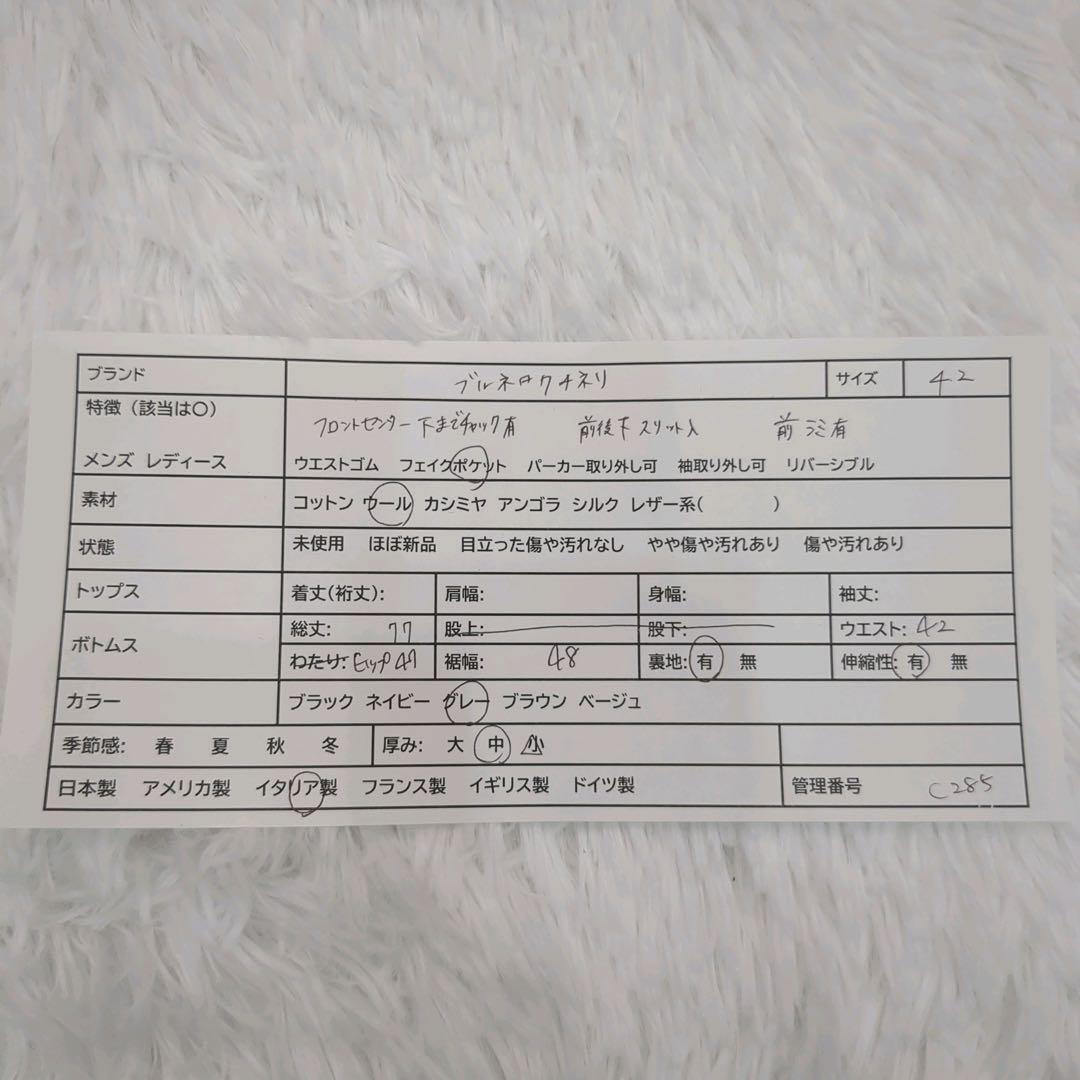 ブランド ブルネロクチネリ サイズ 42
特徴（該当は〇）
フロントセンター下までチャック有 前後下スリット入 前 有
メンズ レディース ウエストゴム フェイクポケット パーカー取り外し可 袖取り外し可 リバーシブル
素材 コットン ウール カシミヤ アンゴラ シルク レザー系( )
状態 未使用 ほぼ新品 目立った傷や汚れなし やや傷や汚れあり 傷や汚れあり
トップス 着丈(裄丈): 肩幅: 身幅: 袖丈:
ボトムス
総丈: 77 股上: 股下: ウエスト: 42
わたり: ヒップ47 裾幅: 48 裏地: 有 無 伸縮性: 有 無
カラー ブラック ネイビー グレー ブラウン ベージュ
季節感: 春 夏 秋 冬 厚み: 大 中 小
日本製 アメリカ製 イタリア製 フランス製 イギリス製 ドイツ製 管理番号 C285